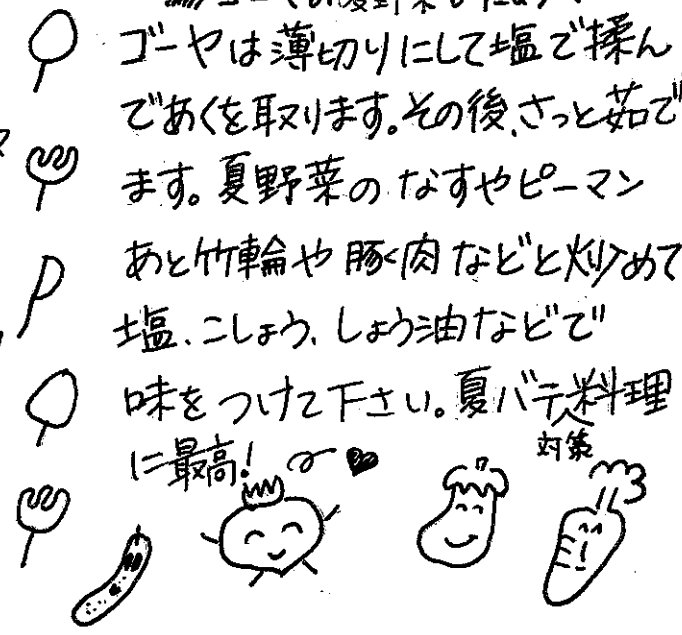 ゴーヤは薄切りにして塩で揉ん
であくを取ります。その後、さっと茹で
ます。夏野菜の なすやピーマン
あと竹輪や豚肉などと炒めて
塩、こしょう、しょう油などで
味をつけて下さい。夏バテ料理
対策
に最高!